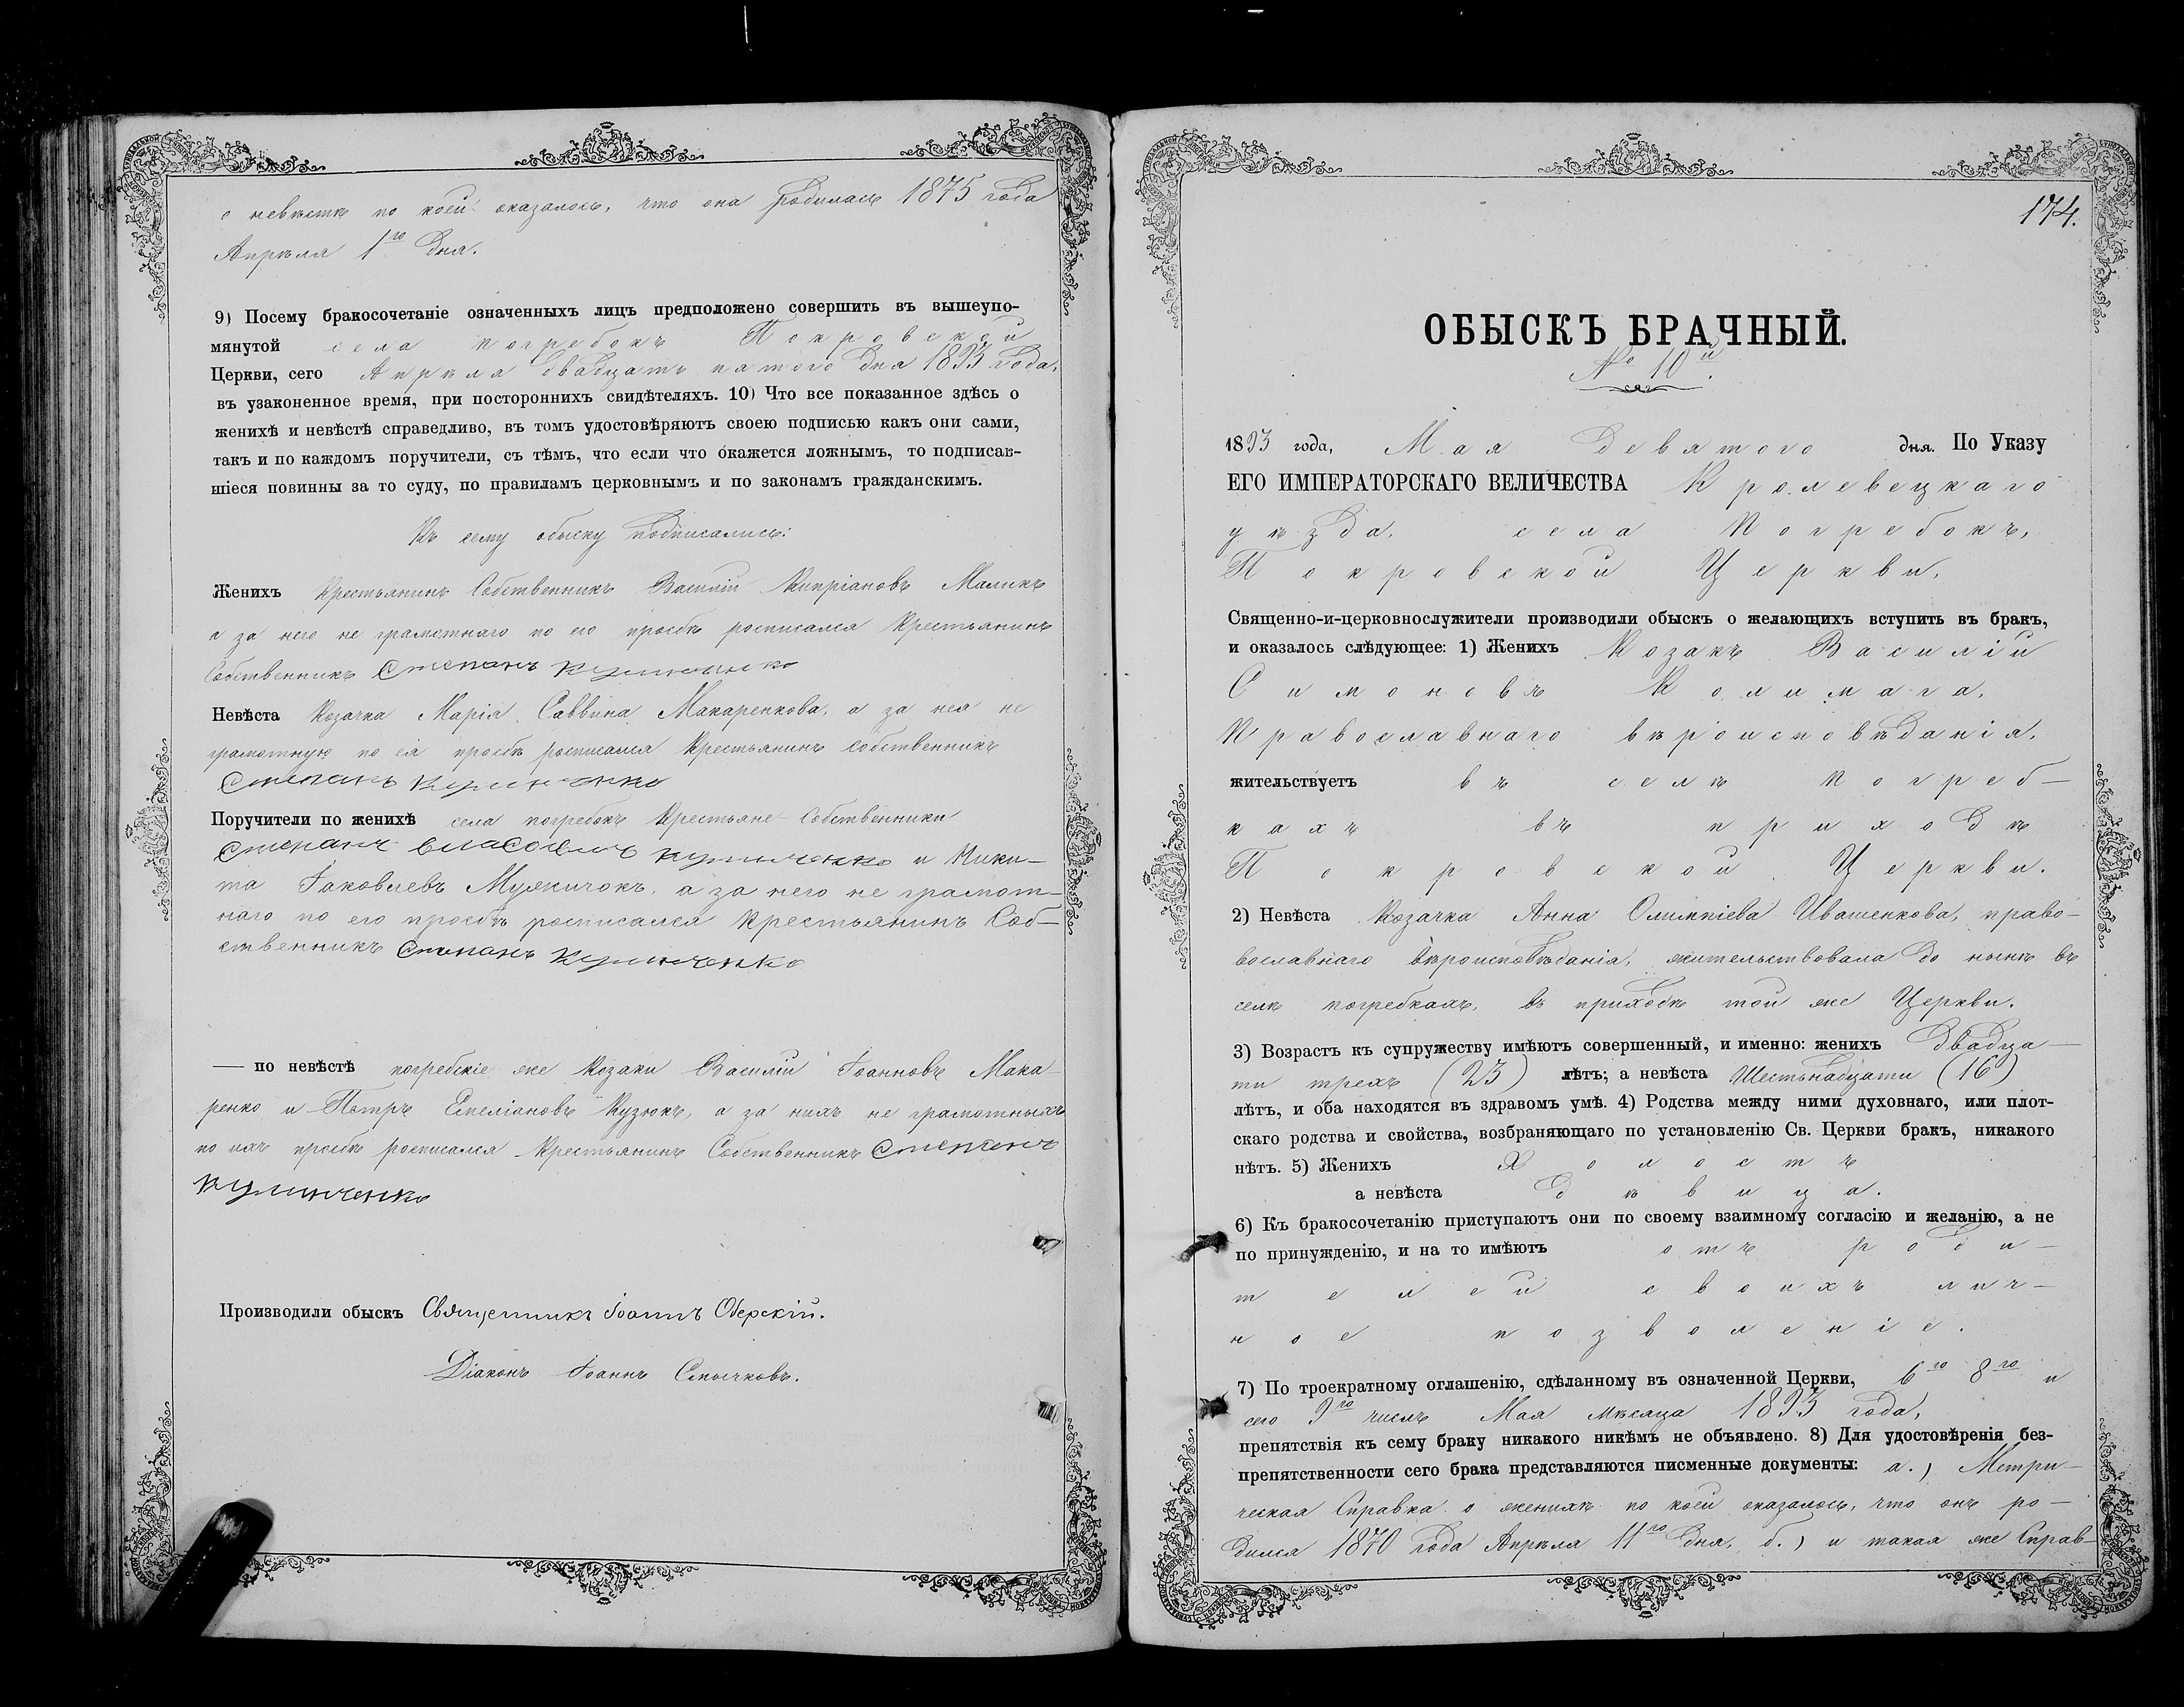 о невѣстѣ по коей оказалось, что она родилась 1875 года
Апрѣля 1го дня.
9) Посему бракосочетаніе означенныхъ лицъ предположено совершить въ вышеупо-
мянутой села Погребокъ Покровской
Церкви, сего Апрѣля двадцать пятого дня 1893 года,
въ узаконенное время, при постороннихъ свидѣтеляхъ. 10) Что все показанное здѣсь о
женихѣ и невѣстѣ справедливо, въ томъ удостовѣряютъ своею подписью какъ они сами,
такъ и по каждомъ поручители, съ тѣмъ, что если что окажется ложнымъ, то подписав-
шіеся повинны за то суду, по правиламъ церковнымъ и по законамъ гражданскимъ.
Къ сему обыску подписались:
Женихъ Крестьянинъ Собственникъ Василій Кипріановъ Маликъ
а за него не грамотнаго по его просьбѣ росписался Крестьянинъ
Собственникъ Степанъ
Невѣста Козачка Марія Саввина Макаренкова, а за нея не
грамотную по ея просьбѣ росписался Крестьянинъ Собственникъ
Степанъ
Поручители по женихѣ села Погребокъ Крестьяне Собственники
Степанъ и Ники-
та Іаковлевъ Мужичокъ, а за него не грамот-
наго по его просьбѣ росписался Крестьянинъ Соб-
ственникъ Степанъ
— по невѣстѣ погребскіе же Козаки Василій Іоанновъ Мака
ренко и Петръ Емеліановъ Кузюкъ, а за нихъ не грамотныхъ
по ихъ просьбѣ росписался Крестьянинъ Собственникъ Степанъ
Производили обыскъ Священникъ Іоаннъ Оберскій.
Діаконъ Іоаннъ Смычковъ.
174.
ОБЫСКЪ БРАЧНЫЙ.
№ 10й.
1893 года, Мая девятого дня. По Указу
ЕГО ИМПЕРАТОРСКАГО ВЕЛИЧЕСТВА Кролевецкаго
уѣзда, села Погребокъ,
Покровской Церкви,
Священно-и-церковнослужители производили обыскъ о желающихъ вступить въ бракъ,
и оказалось слѣдующее: 1) Женихъ Козакъ Василій
Симоновъ Колимага,
Православнаго вѣроисповѣданія,
жительствуетъ въ селѣ Погреб—
кахъ въ приходѣ
Покровской Церкви.
2) Невѣста Козачка Анна Олимпіева Ивашенкова, право—
вославнаго вѣроисповѣданія, жительствовала до нынѣ въ
селѣ Погребкахъ, въ приходѣ той же Церкви.
3) Возрастъ къ супружеству имѣютъ совершенный, и именно: женихъ двадца—
ти трехъ (23) лѣтъ; а невѣста Шестьнадцати (16)
лѣтъ, и оба находятся въ здравомъ умѣ. 4) Родства между ними духовнаго, или плот-
скаго родства и свойства, возбраняющаго по установленію Св. Церкви бракъ, никакого
нѣтъ. 5) Женихъ Холостъ
а невѣста дѣвица.
6) Къ бракосочетанію приступаютъ они по своему взаимному согласію и желанію, а не
по принужденію, и на то имѣютъ отъ роди—
телей своихъ лич—
ное позволеніе.
7) По троекратному оглашенію, сдѣланному въ означенной Церкви, 6го 8го и
сего 9го числъ Мая мѣсяца 1893 года,
препятствія къ сему браку никакого никѣмъ не объявлено. 8) Для удостовѣренія без-
препятственности сего брака представляются писменные документы: а.) Метри—
ческая Справка о женихѣ по коей оказалось, что онъ ро—
дился 1870 года Апрѣля 11го дня, б.) и такая же Справ—